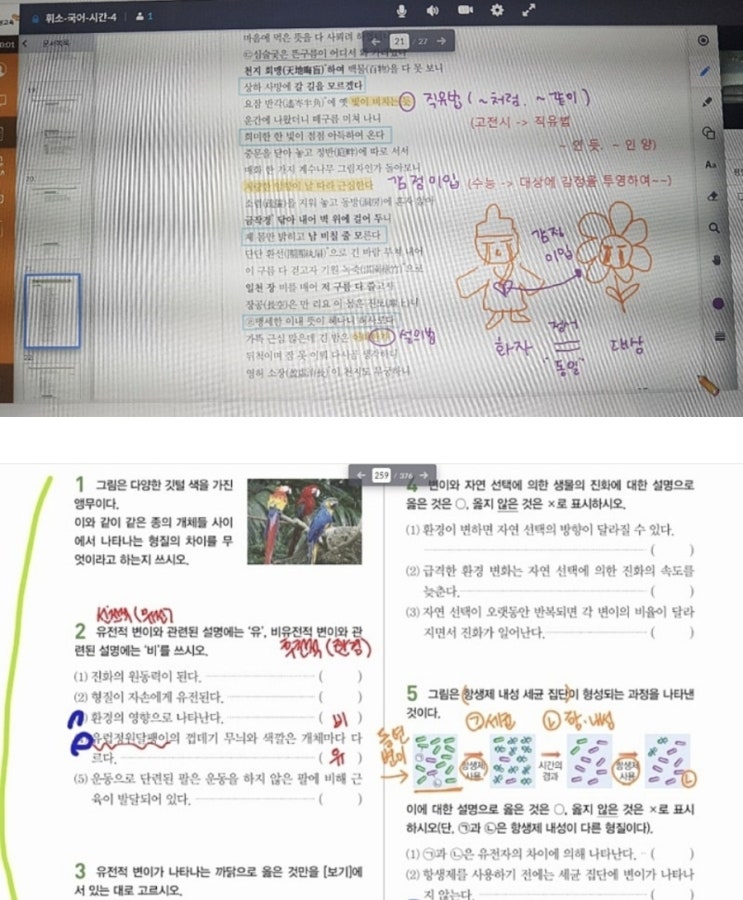 휘소-국어-시간-4 1
문서목록
21 / 27
마음에 먹은 뜻을 다 사뢰려
천지 회맹(天地晦盲)하여 백물(百物)을 다 못 보니
상하 사방에 갈 길을 모르겠다
요잠 반각(遙岑半角)에 옛 빛이 비치는 듯
직유법 (~처럼, ~같이)
운간에 나왔더니 떼구름 미쳐 나니
(고전시 -> 직유법
희미한 한 빛이 점점 아득하여 온다
~인 듯, ~인 양)
중문을 닫아 놓고 정반(庭畔)에 따로 서서
매화 한 가지 계수나무 그림자인가 돌아보니
감정이입 (수능 -> 대상에 감정을 투영하여~~)
소렴(疏簾)을 지워 놓고 동방(洞房)에 혼자 앉아
금작경 닦아 내어 벽 위에 걸어 두니
제 몸만 밝히고 남 비칠 줄 모른다
감정
이입
으로 긴 바람 부쳐 내어
이 구름 다 걷고자 기원 녹죽(淇園綠竹)으로
일천 장 비를 매어 저 구름 다 쓸고자
장공(長空)은 만 리요 이 몸은 진토(塵土)니
맹세한 이내 뜻이 헤나니 허사로다
가뜩 근심 많은데 긴 밤은
설의법
화자
정서
"동일"
대상
뒤척이며 잠 못 이뤄 다시곰 생각하니
영허 소장(盈虛消長)이 천지도 무궁하니
259 / 376
1 그림은 다양한 깃털 색을 가진
앵무이다.
이와 같이 같은 종의 개체들 사이
에서 나타나는 형질의 차이를 무
엇이라고 하는지 쓰시오.
선천적 (유전)
2 유전적 변이와 관련된 설명에는 ‘유’, 비유전적 변이와 관
련된 설명에는 ‘비’를 쓰시오.
후천적 (환경)
(1) 진화의 원동력이 된다. ( )
(2) 형질이 자손에게 유전된다. ( )
환경의 영향으로 나타난다. ( 비 )
유럽정원달팽이의 껍데기 무늬와 색깔은 개체마다 다
르다. ( 유 )
(5) 운동으로 단련된 팔은 운동을 하지 않은 팔에 비해 근
육이 발달되어 있다. ( )
3 유전적 변이가 나타나는 까닭으로 옳은 것만을 [보기]에
서 있는 대로 고르시오.
4 변이와 자연 선택에 의한 생물의 진화에 대한 설명으로
옳은 것은 ○, 옳지 않은 것은 ×로 표시하시오.
(1) 환경이 변하면 자연 선택의 방향이 달라질 수 있다.
( )
(2) 급격한 환경 변화는 자연 선택에 의한 진화의 속도를
늦춘다. ( )
(3) 자연 선택이 오랫동안 반복되면 각 변이의 비율이 달라
지면서 진화가 일어난다. ( )
5 그림은 항생제 내성 세균 집단이 형성되는 과정을 나타낸
것이다.
㉠ 세균 ㉡ 항·내성
돌연
변이
항생제
사용
시간의
경과
항생제
사용
㉡
이에 대한 설명으로 옳은 것은 ○, 옳지 않은 것은 ×로 표시
하시오(단, ㉠과 ㉡은 항생제 내성이 다른 형질이다).
(1) ㉠과 ㉡은 유전자의 차이에 의해 나타난다. ( )
(2) 항생제를 사용하기 전에는 세균 집단에 변이가 나타나
지 않는다. ( )